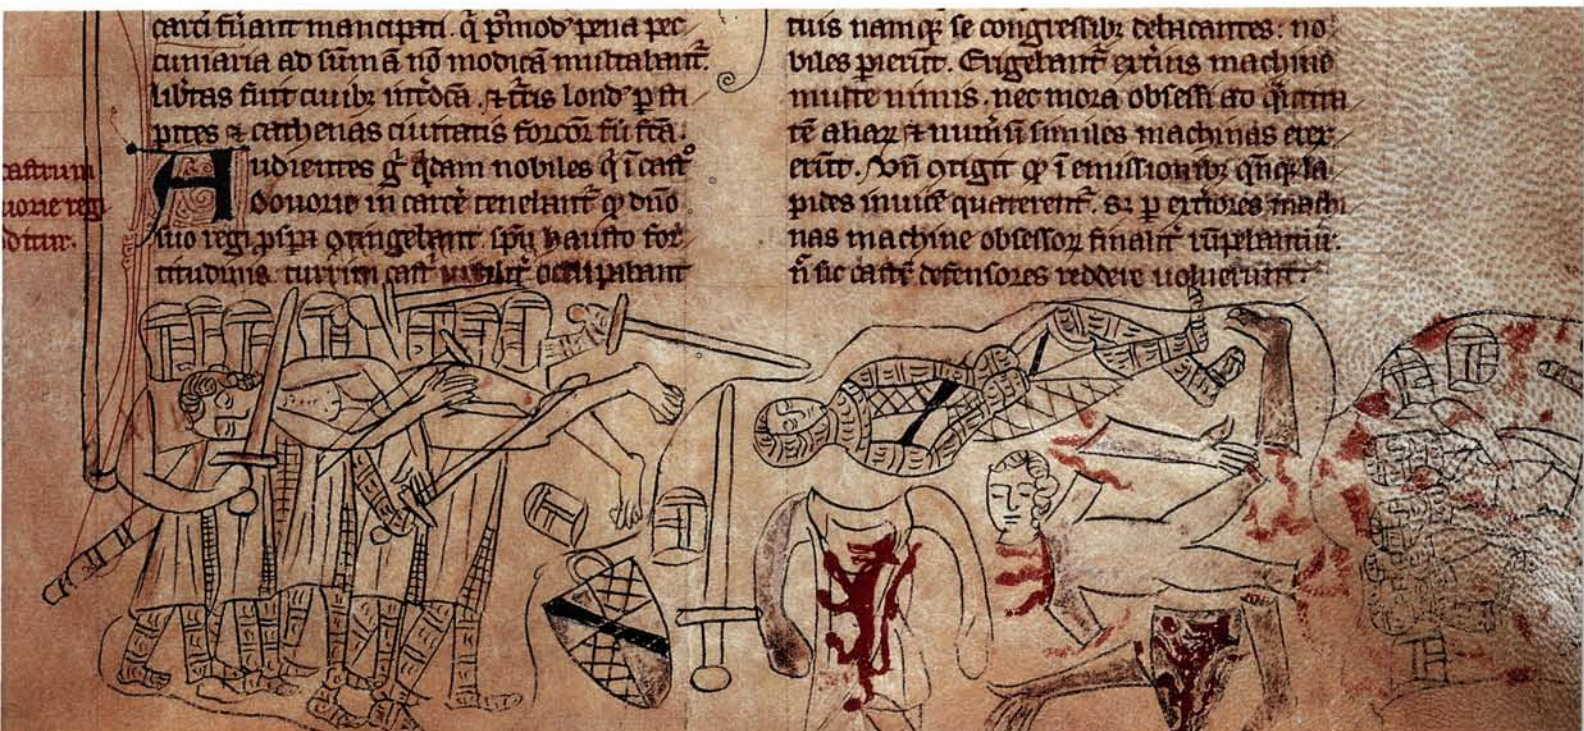 carc̄i fūant mancipati. q̄ p̄mod' pena pec
cuniaria ad sūmā nō modicā multabant᷑.
lib̄tas fuit ciuib; int̄dc̄a. ⁊ t̄ris lond' p̄ sti
pites ⁊ cathenas ciuitatis forcor̄ fū fc̄a.
Audientes g̊ q̄dam nobiles q̄ ī cast̊
douorie in carcē tenebant᷑ ꝙ dn̄o
suo regi ꝓsp̄a ꝯtingebant. sp̄u hausto for
titudinis turrim cast̄ uirilit̄ occupabant
castrum
uorie regi
ditur.
tuis namq; se congressib; debacantes: no
biles p̄ierūt. Erigebant᷑ ext̄ius machine
multe nimis. nec mora obsessi ad q̄ntita
tē aliaꝝ ⁊ num̄ū similes machinas erex
erūt. Vn̄ ꝯtigit ꝙ ī emissionib; qn̄q; la
pides inuicē quaterent᷑. s; p̄ ext̄iores machi
nas machine obsessoꝝ finalit̄ rūpebantur.
n̄ sic cast̄ defensores reddere uoluerunt.